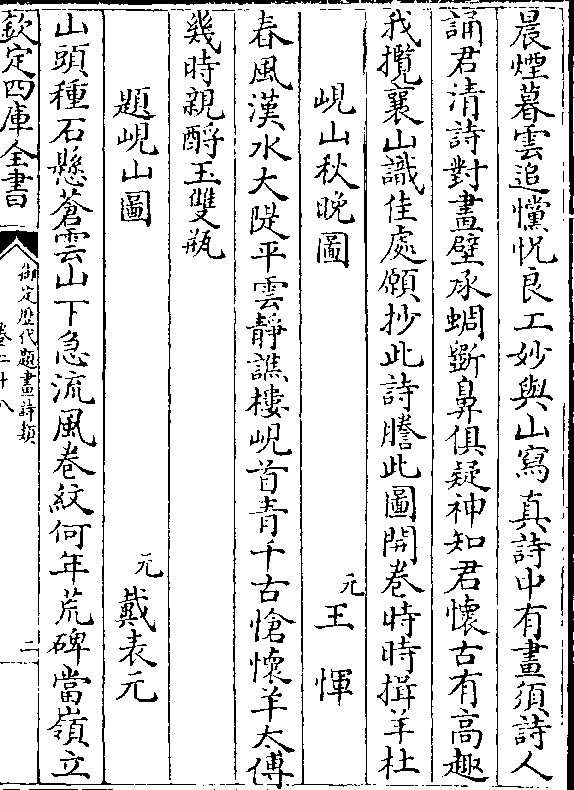 晨煙暮雲追爣怳良工妙與山寫真詩中有畫須詩人
誦君清詩對畫壁承蜩斲鼻俱疑神知君懷古有高趣
我攬襄山識佳處願抄此詩謄此圖開卷時時揖羊杜
峴山秋晚圖　元王惲
春風漢水大隄平雲靜譙樓峴首青千古愴懷羊太傅
幾時親酹玉雙瓶
題峴山圖　元戴表元
山頭種石懸蒼雲山下急流風卷紋何年荒碑當嶺立
欽定四庫全書
御定歷代題畫詩類
卷二十八
二